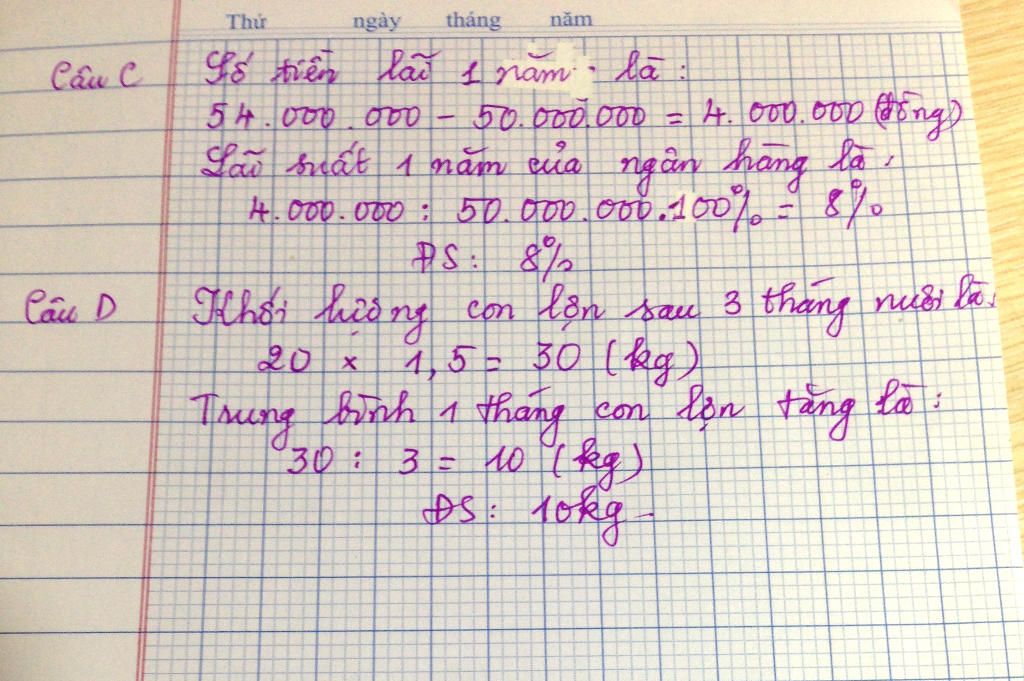 Thứ ngày tháng năm
Câu C Số tiền lãi 1 năm là:
54.000.000 - 50.000.000 = 4.000.000 (đồng)
Lãi suất 1 năm của ngân hàng là.
4.000.000 : 50.000.000.100% = 8%
ĐS: 8%
Câu D Khối lượng con lợn sau 3 tháng nuôi là.
20 × 1,5 = 30 (kg)
Trung bình 1 tháng con lợn tăng là:
30 : 3 = 10 (kg)
ĐS: 10kg.